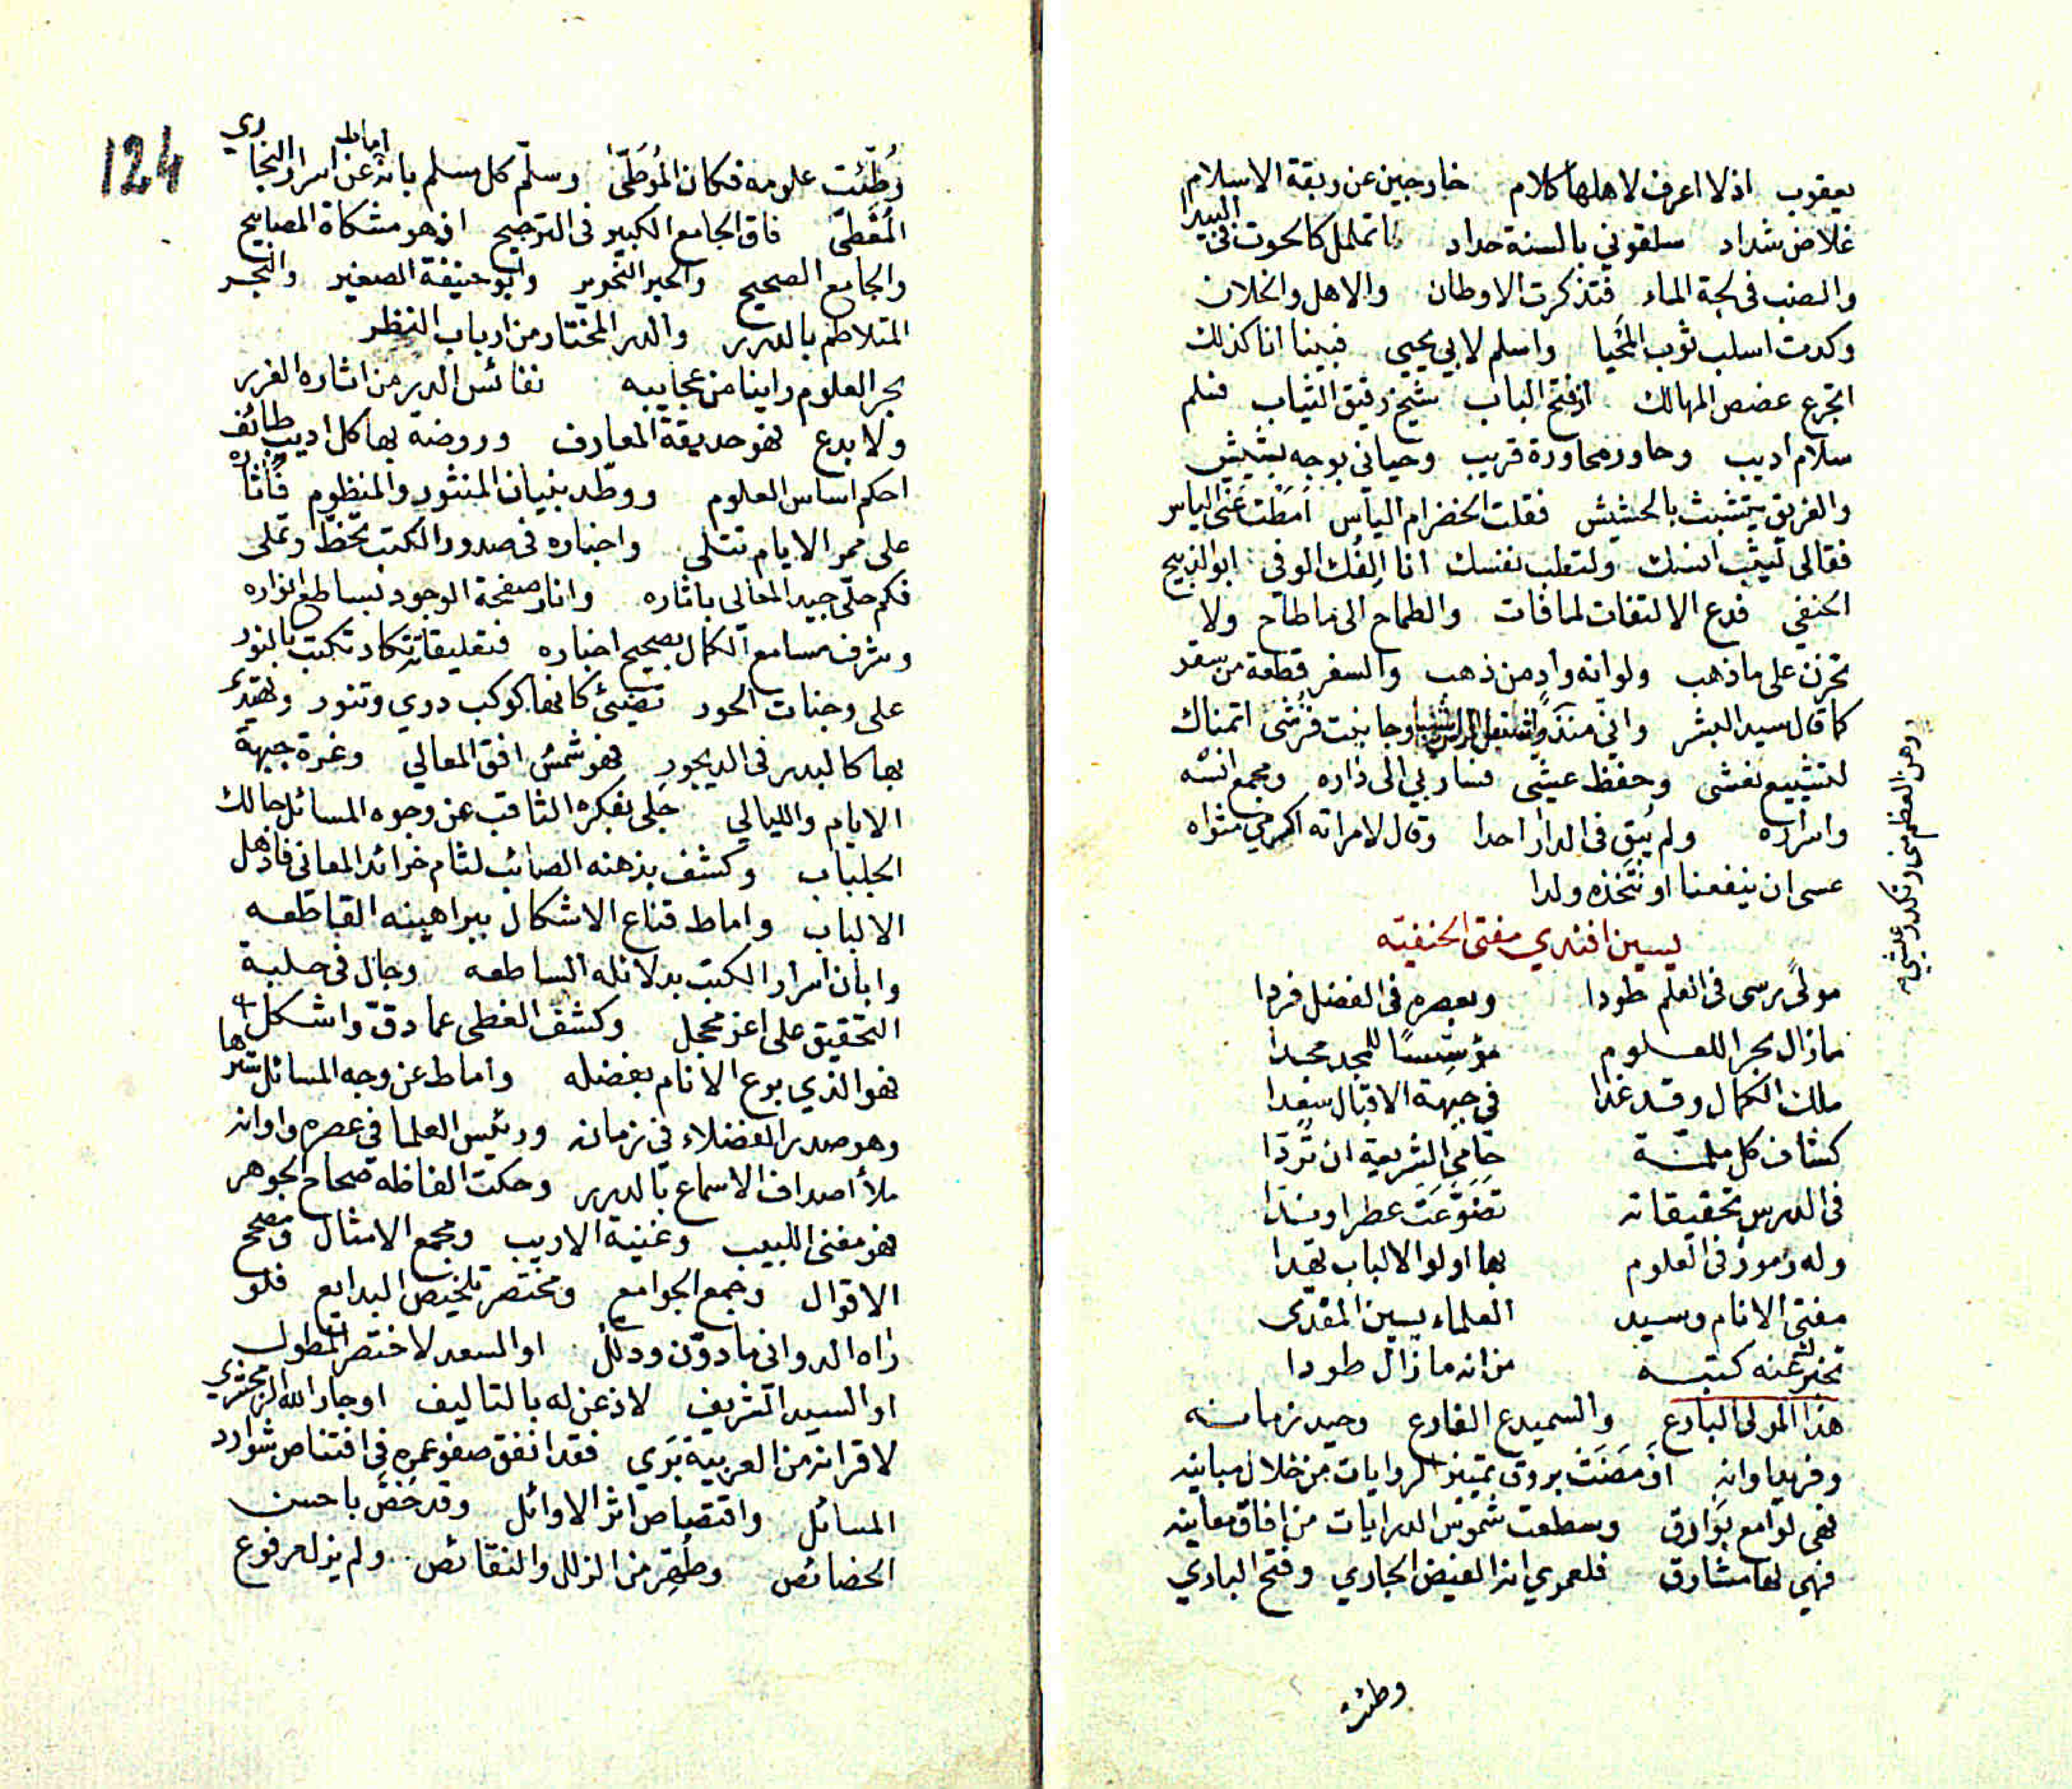 يعقوب اذ لا اعرف لاهلها كلام خارجين عن ربقة الاسلام
غلاض شداد سلقوني بالسنة حداد اتململ كالحوت في البيدا
والضب في لجة الماء فتذكرت الاوطان والاهل والخلان
وكدت اسلب ثوب المحيا واسلم لابي يحيى فبينا انا كذلك
اتجرع غصص المهالك اذ فتح الباب شيخ رقيق الثياب فسلم
سلام اديب وحاور محاورة قريب وحياني بوجه بشيش
والغريق يتشبث بالحشيش فقلت الخضر ام الياس امطت عني الباس
فقال لي ليثب انسك ولتطب نفسك انا الفك الوفي ابو الذبيح
الحنفي فدع الالتفات لما فات والطماح الى ما طاح ولا
تحزن على ما ذهب ولو انه واد من ذهب والسفر قطعة من سقر
كما قال سيد البشر واني منذ واشتعل الراس شيبا وجانبت فرشي اتمناك
لتشييع نعشي وحفظ عيشي فسار بي الى داره ومجمع انسه
واسراره ولم يبق في الدار احدا وقال لامراته اكرمي مثواه
عسى ان ينفعنا او نتخذه ولدا
وهن العظم مني وتكدر عيشي
يسين افندي مفتي الحنفيه
مولى رسى في العلم طودا وبعصره في الفضل فردا
مازال بحرا للعلوم مؤسسا للمجد مجدا
ملك الكمال وقد غدا في جبهة الاقبال سعدا
كشاف كل ملمة حامي الشريعة ان تردا
في الدرس تحقيقاته تضوعت عطرا وندا
وله رموز في العلوم بها اولوا الالباب تهدا
مفتي الانام وسيد العلماء يسين المفدى
تخبرك عنه كتبه من انه مازال طودا
هذا المولى البارع والسميدع الفارع وحيد زمانه
وفريد اوانه اومضت بروق تمييز الروايات من خلال مبانيه
فهي لوامع بوارق وسطعت شموس الدرايات من افاق معانيه
فهي لها مشارق فلعمري انه الفيض الجاري وفتح الباري
وطئت
124
وطئت علومه فكان الموطى وسلم كل مسلم بانه اماط عن اسرار البخاري
المغطى فاق الجامع الكبير في الترجيح اذ هو مشكاة المصابيح
والجامع الصحيح والحبر النحرير وابو حنيفة الصغير والبحر
المتلاطم بالدرر والدر المختار من ارباب النظر
بحر العلوم راينا من عجايبه نفائس الدر من اثاره الغرر
ولا بدع فهو حديقة المعارف وروضة بها كل اديب طائف
احكم اساس العلوم ووطد بنيان المنثور والمنظوم فاثاره
على ممر الايام تتلى واخباره في صدور الكتب تخط وتملى
فكم حلى جيد المعالى باثاره وانار صفحة الوجود بساطع انواره
وشرف مسامع الكمال بصحيح اخباره فتعليقاته تكاد تكتب بالنور
على وجنات الحور تضيئ كانها كوكب دري وتنور ونهتدي
بها كالبدر في الديجور فهو شمس افق المعالي وغرة جبهة
الايام والليالي جلى بفكره الثاقب عن وجوه المسائل حالك
الجلباب وكشف بذهنه الصائب لثام خرائد المعانى فاذهل
الالباب واماط قناع الاشكال ببراهينه القاطعه
وابان اسرار الكتب بدلائله الساطعه وجال في حلبة
التحقيق على اغر محجل وكشف الغطى عما دق واشكل
فهو الذي برع الانام بفضله واماط عن وجه المسائل سترها
وهو صدر الفضلاء في زمانه ورئيس العلما في عصره واوانه
ملأ اصداف الاسماع بالدرر وحكت الفاظه صحاح الجوهر
فهو مغنى اللبيب وغنية الاريب ومجمع الامثال ومصحح
الاقوال وجمع الجوامع ومختصر تلخيص البدايع فلو
راه الدوانى ما دون ودلل او السعد لاختصر المطول
او السيد الشريف لاذعن له بالتاليف او جار الله الزمخشري
لاقر انه من العربية بري فقد انفق صفو عمره في اقتناص شوارد
المسائل واقتصاص اثر الاوائل وقد خص باحسن
الخصائص وطهر من الزلل والنقائص ولم يزل مرفوع